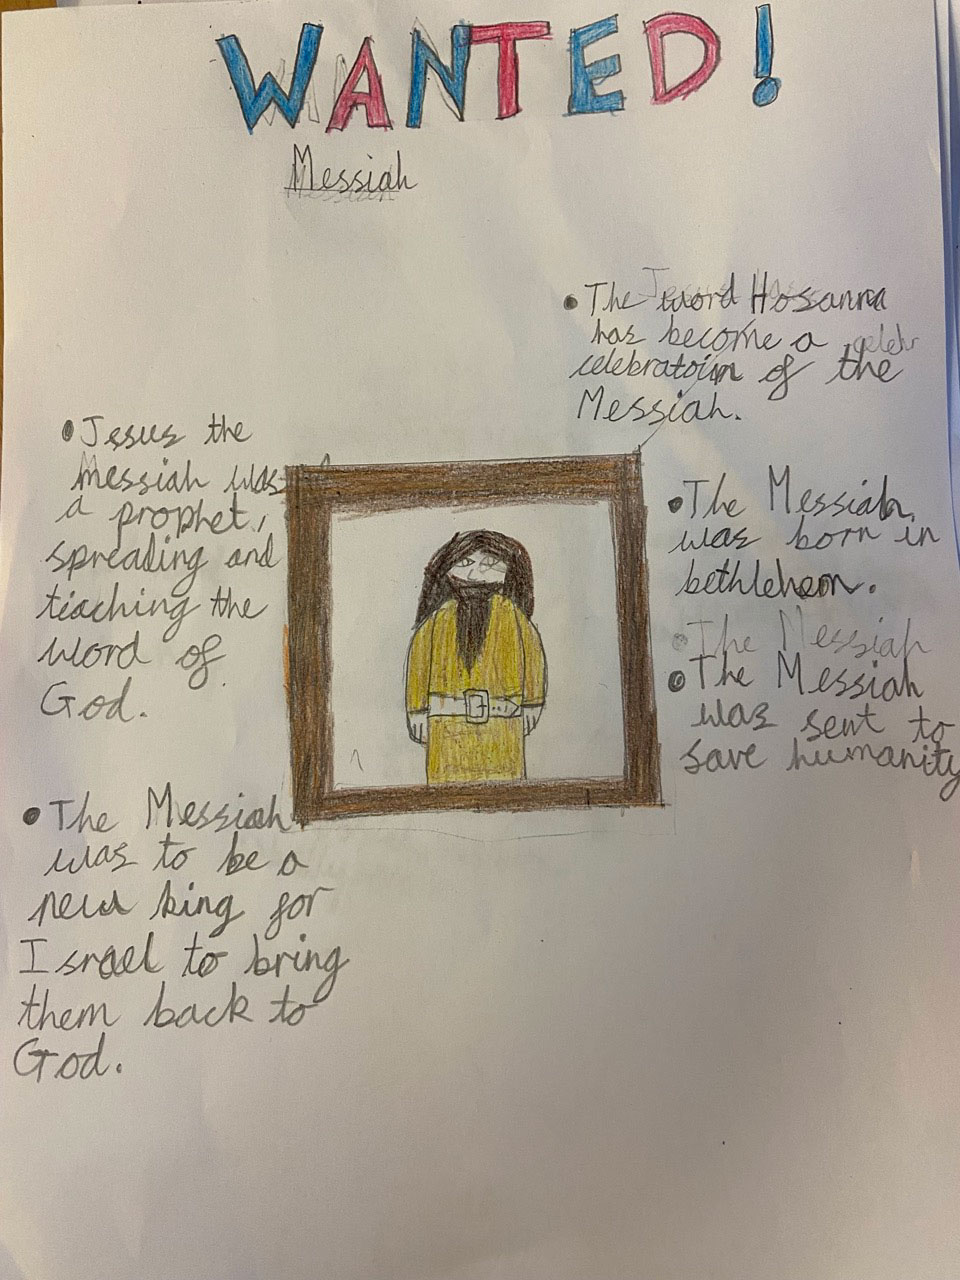 WANTED!
Messiah
• The word Hosanna
has become a
celebratoin of the
Messiah.
• Jesus the
messiah was
a prophet,
spreading and
teaching the
word of
God.
• The Messiah
was born in
bethlehem.
• The Messiah
• The Messiah
was sent to
save humanity
• The Messiah
was to be a
new king for
Israel to bring
them back to
God.